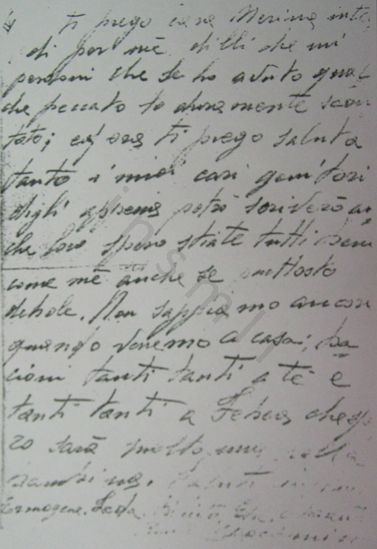 ti prego cara Nerina
di per mè dilli che mi
perdoni che se ho avuto qual
che peccato lo duramente scon
tato; ed ora ti prego saluta
tanto i miei cari genitori
digli appena potrò scriverò an
che loro spero state tutti bene
come mè anche se piuttosto
debole. Non sappiamo ancora
quando veremo a casa; ba
cioni tanti tanti a tè e
tanti tanti a che
ro sarà molto
bambina. Saluti
Ermogene.
insmli